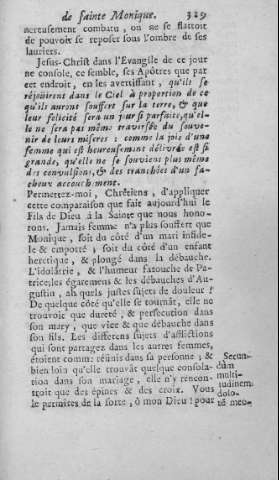 de sainte Monique. 329
nereusement combatu, ou ne se flattoit
de pouvoir se reposer sous l'ombre de ses
lauriers.
Jesus-Christ dans l'Evangile de ce jour
ne console, ce semble, ses Apôtres que par
cet endroit, en les avertissant, qu'ils se
réjoüiront dans le Ciel à proportion de ce
qu'ils auront souffert sur la terre, & que
leur felicité sera un jour si parfaite, qu'el-
le ne sera pas même traversée du souve-
nir de leurs miseres : comme la joie d'une
femme qui est heureusement délivrée est si
grande, qu'elle ne se souvient plus même
des convulsions, & des tranchées d'un fâ-
cheux accouchement.
Permettez-moi, Chrétiens, d'appliquer
cette comparaison que fait aujourd'hui le
Fils de Dieu à la Sainte que nous hono-
rons. Jamais femme n'a plus souffert que
Monique, soit du côté d'un mari infidel-
le & emporté ; soit du côté d'un enfant
heretique, & plongé dans la débauche.
L'idolâtrie, & l'humeur farouche de Pa-
trice; les égaremens & les débauches d'Au-
gustin, ah quels justes sujets de douleur !
De quelque côté qu'elle se tournât, elle ne
trouvoit que dureté, & persecution dans
son mary, que vice & que débauche dans
son fils. Les differens sujets d'afflictions
qui sont partagez dans les autres femmes,
étoient comme réünis dans sa personne ; &
bien loin qu'elle trouvât quelque consola-
tion dans son mariage, elle n'y rencon-
troit que des épines & des croix. Vous
le permîtes de la sorte, ô mon Dieu ! pour
Secun-
dùm
multi-
tudinem
dolo-
rū meo-